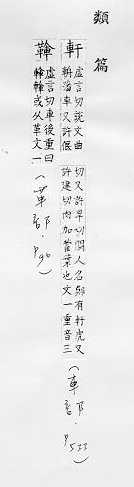 類篇
軒
虛言切說文曲
輈藩車又許偃
切又許旱切闕人名鄭有軒虎又
許建切肉加藿葉也文一重音三
(車部.P533)
虛言切車後重曰
或从革文一
(革部.P96)